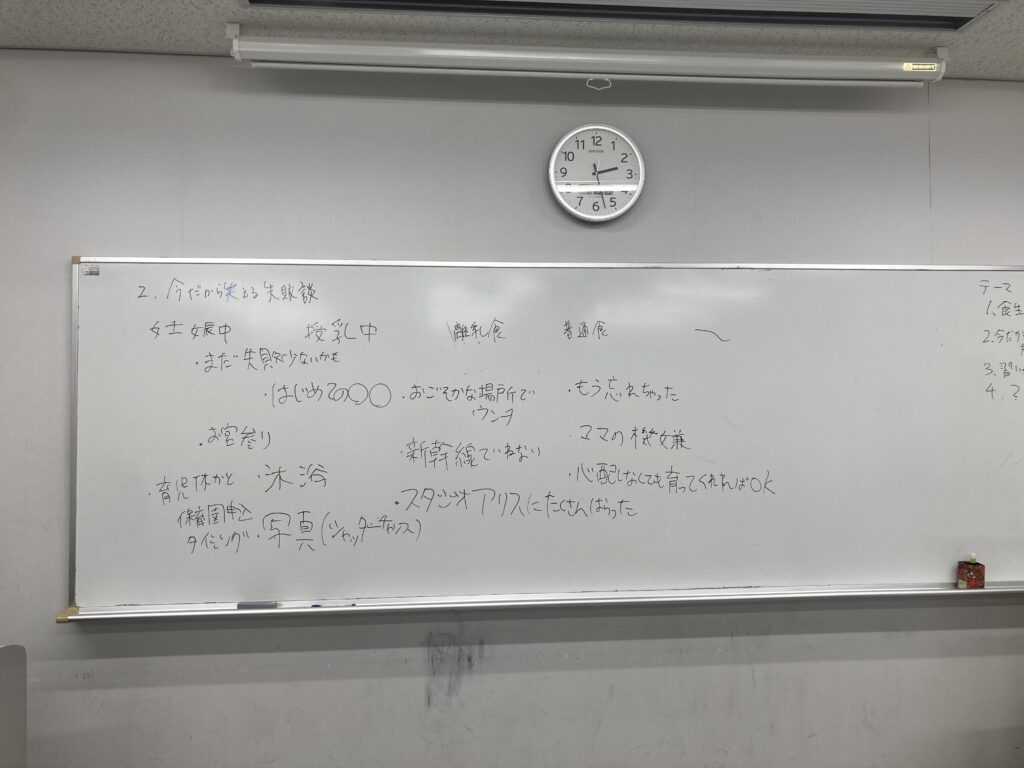 2. 今だから笑える失敗談
妊娠中
授乳中
離乳食
普通食
〜
・まだ失敗少ないかも
・はじめての○○
・お宮参り
・沐浴
・育児休かと
保育園申込
タイミング
・写真(シャッターチャンス)
・おごそかな場所で
ウンチ
・新幹線でいねない
・スタジオアリスにたくさんはらった
・もう忘れちゃった
・ママの機嫌
・心配しなくても育ってくれればOK
テーマ
1. 食生
2. 今だか
3. 習い
4.
12
1
2
3
4
5
6
7
8
9
10
11